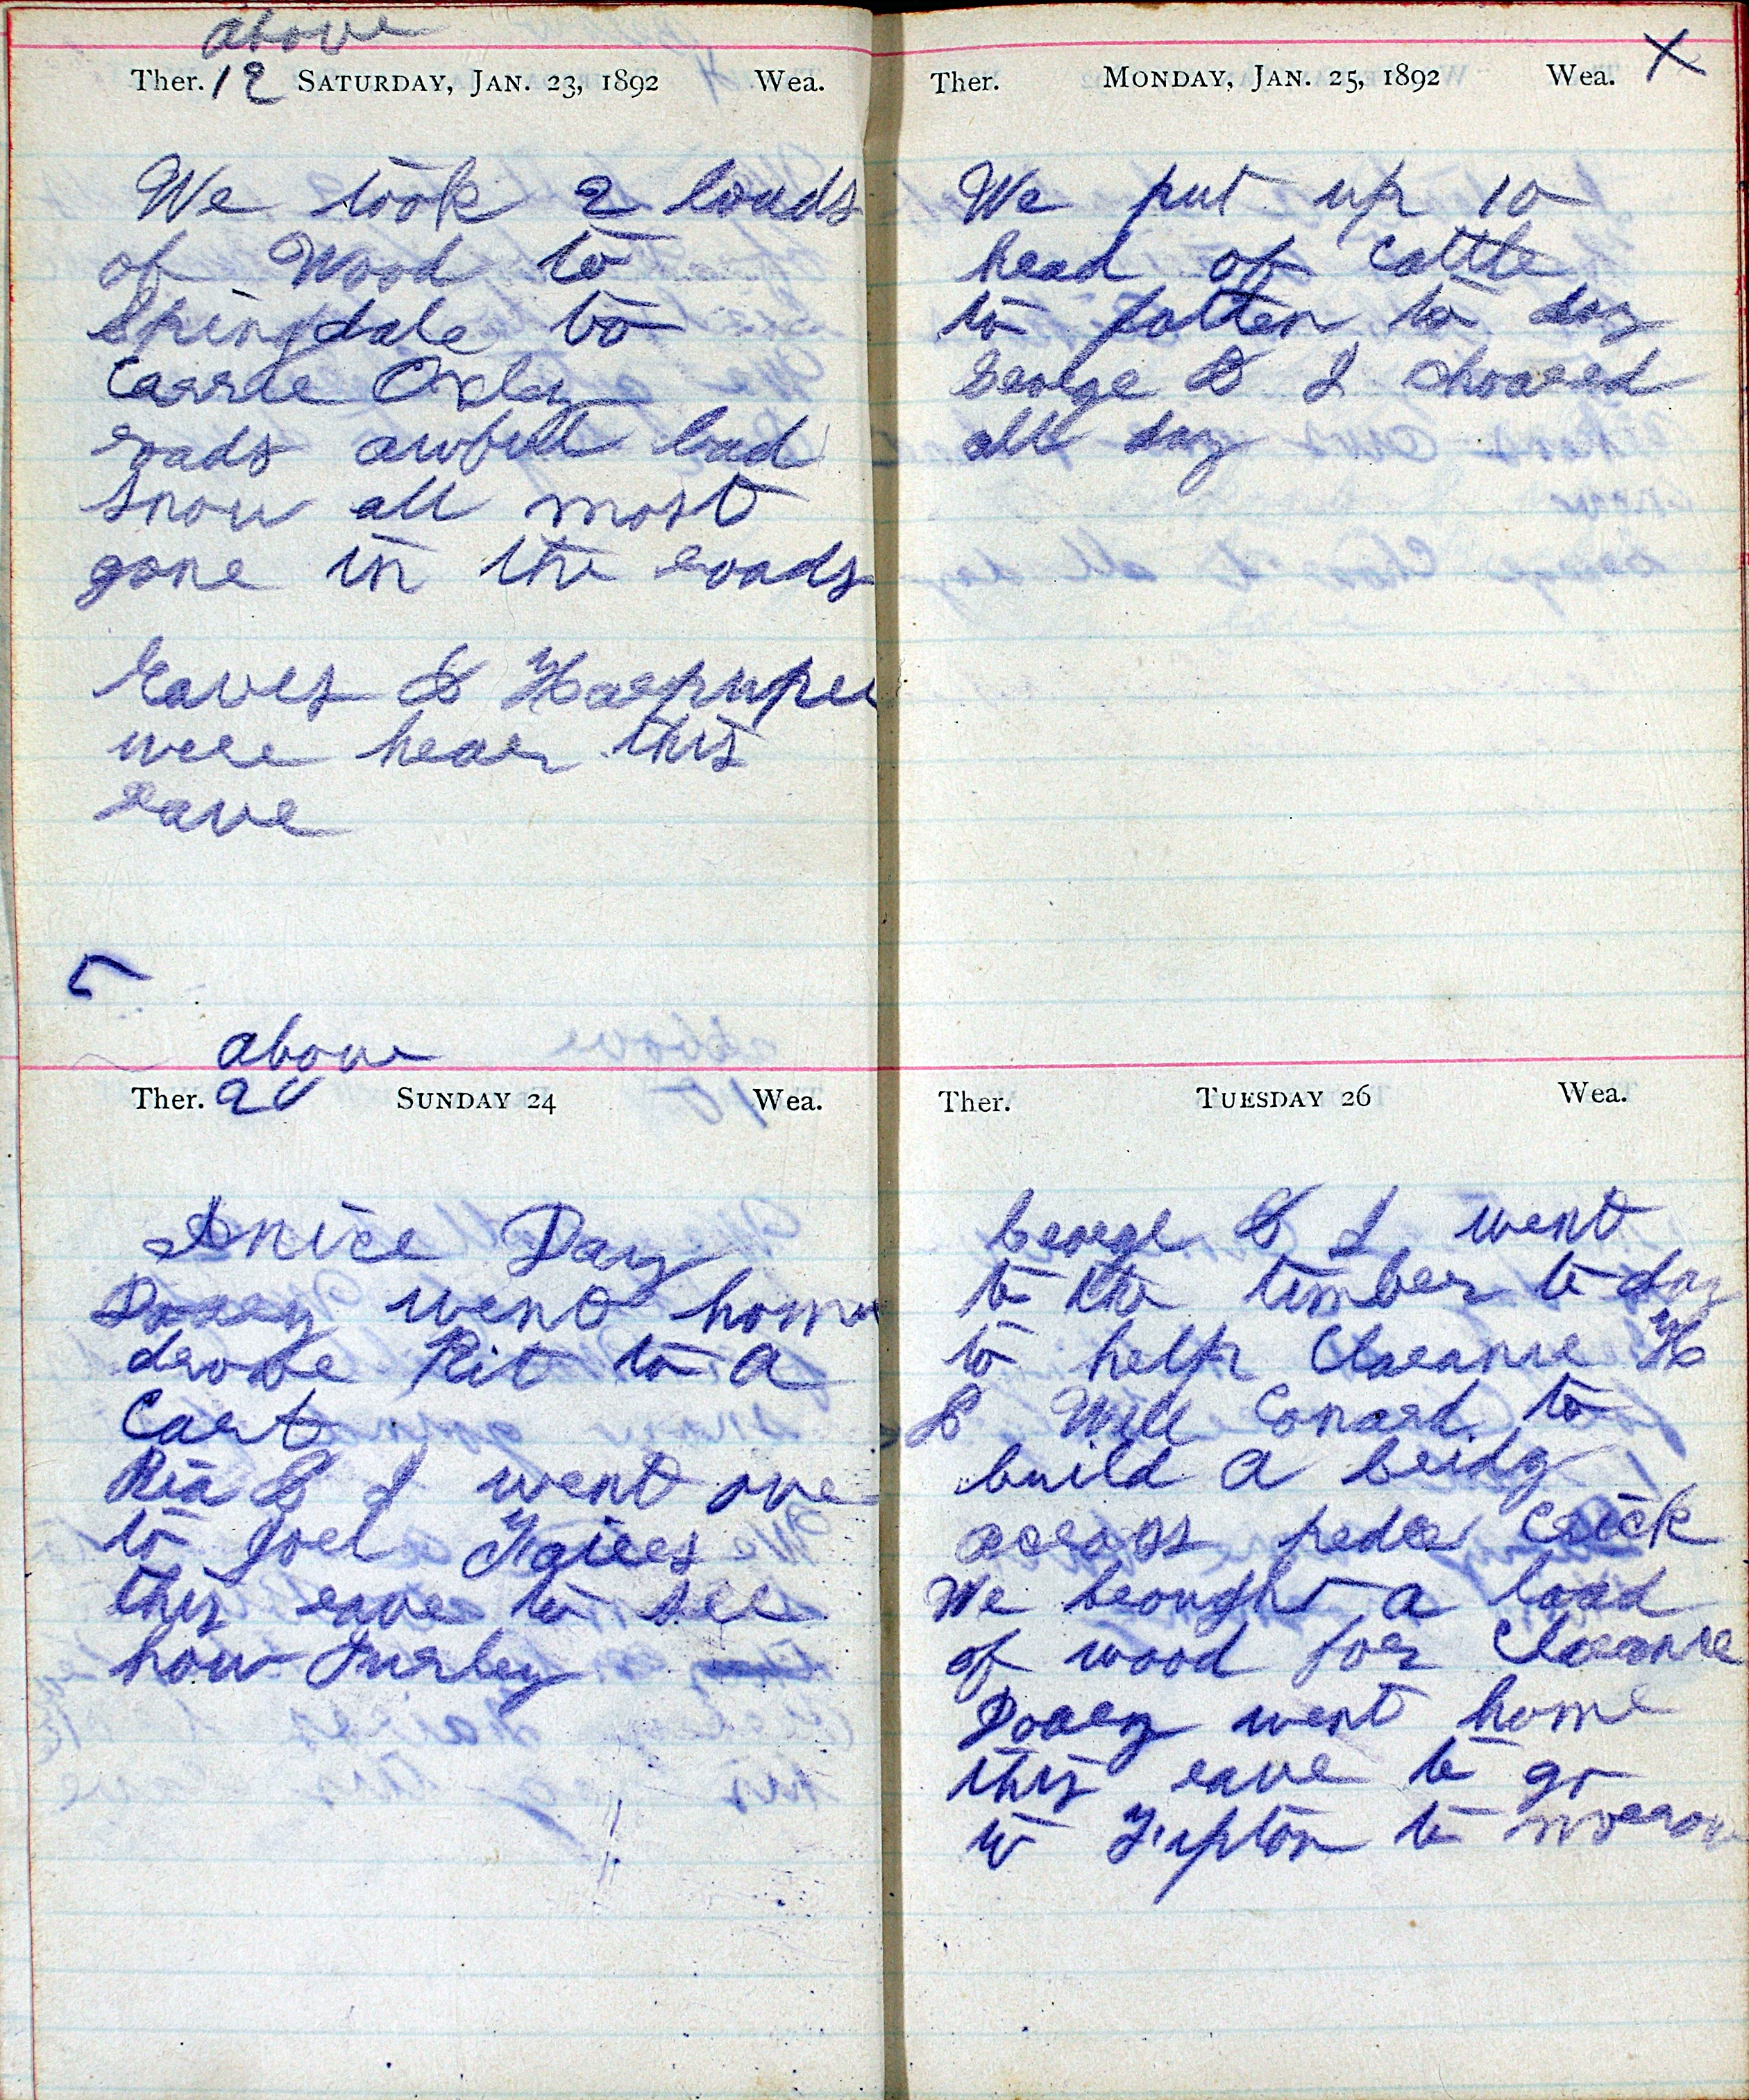 above
Ther. 12 SATURDAY, JAN. 23, 1892 Wea.
We took 2 loads
of Wood to
Springdale to
Carrie Oxley
roads awfull bad
Snow all most
gone in the roads
Eaves &
were hear this
eave
5
above
Ther. 20 SUNDAY 24 Wea.
A nice Day
Doxey went home
drove Kit to a
Cart
Ria & I went over
to Joel
this eave to see
how Furley
Ther. MONDAY, JAN. 25, 1892 Wea. X
We put up 10
head of cattle
to fatten to day
George & I choared
all day
Ther. TUESDAY 26 Wea.
George & I went
to the timber to day
to help Clearance H
& Will Conard to
build a bridg
across peder Crick
We brought a load
of wood for Clearance
Doxey went home
this eave to go
to Tipton to morrow